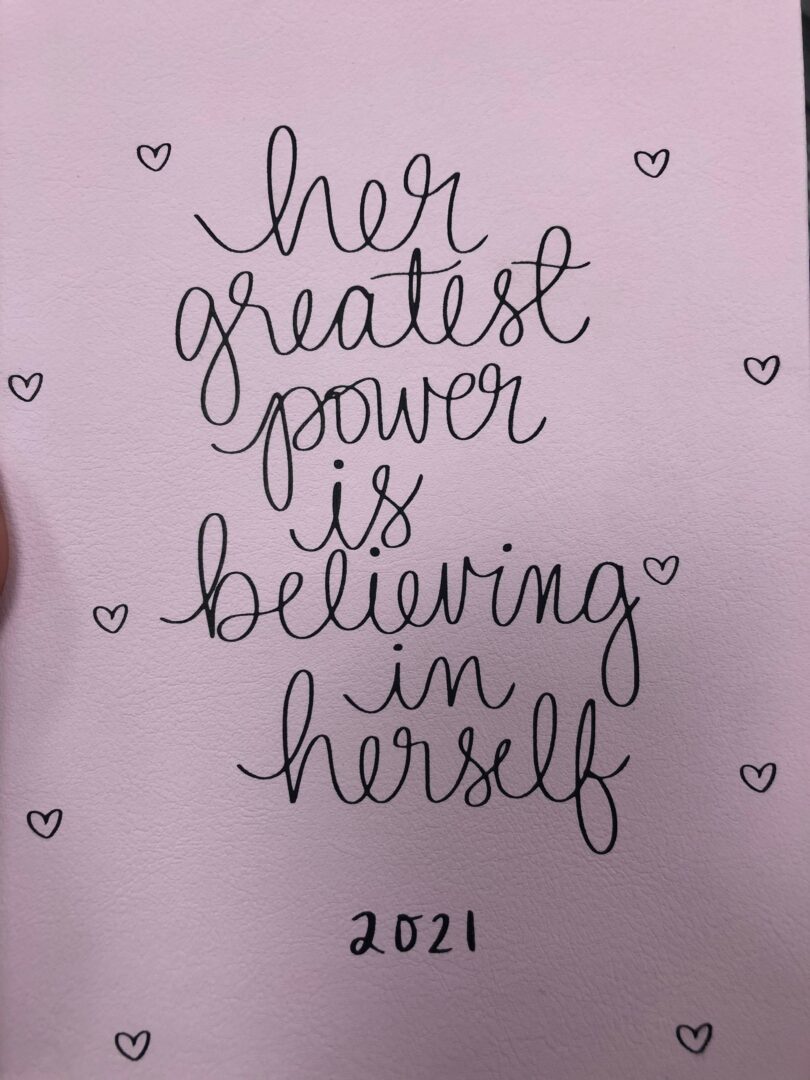 her
greatest
power
is
believing
in
herself
2021